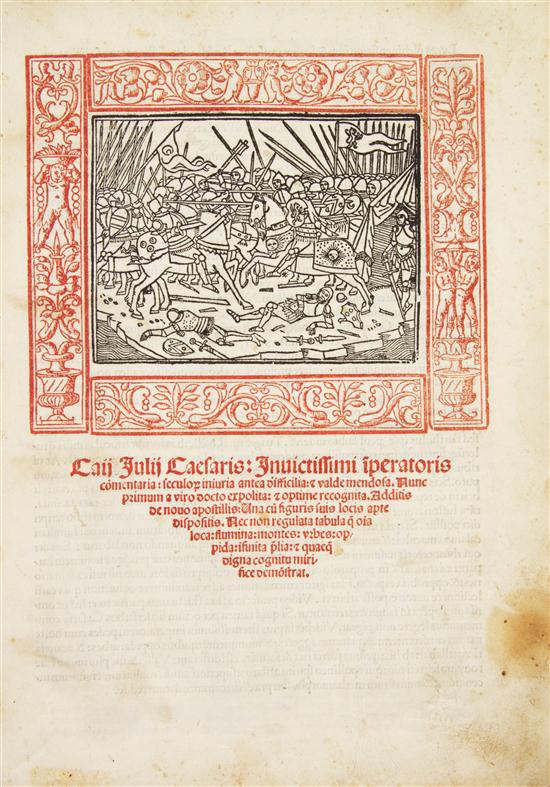 Caij Julij Caesaris: Inuictissimi īperatoris
cōmentaria: seculoꝝ iniuria antea difficilia: ⁊ valde mendosa. Nunc
primum a viro docto expolita: ⁊ optime recognita. Additis
de nouo apostillis: Una cū figuris suis locis apte
dispositis. Nec non regulata tabula q̄ oīa
loca: flumina: montes: vꝛbes: op⸗
pida: īfinita p̄lia: ⁊ quaecꝗ
digna cognitu miri⸗
fice demōstrat.